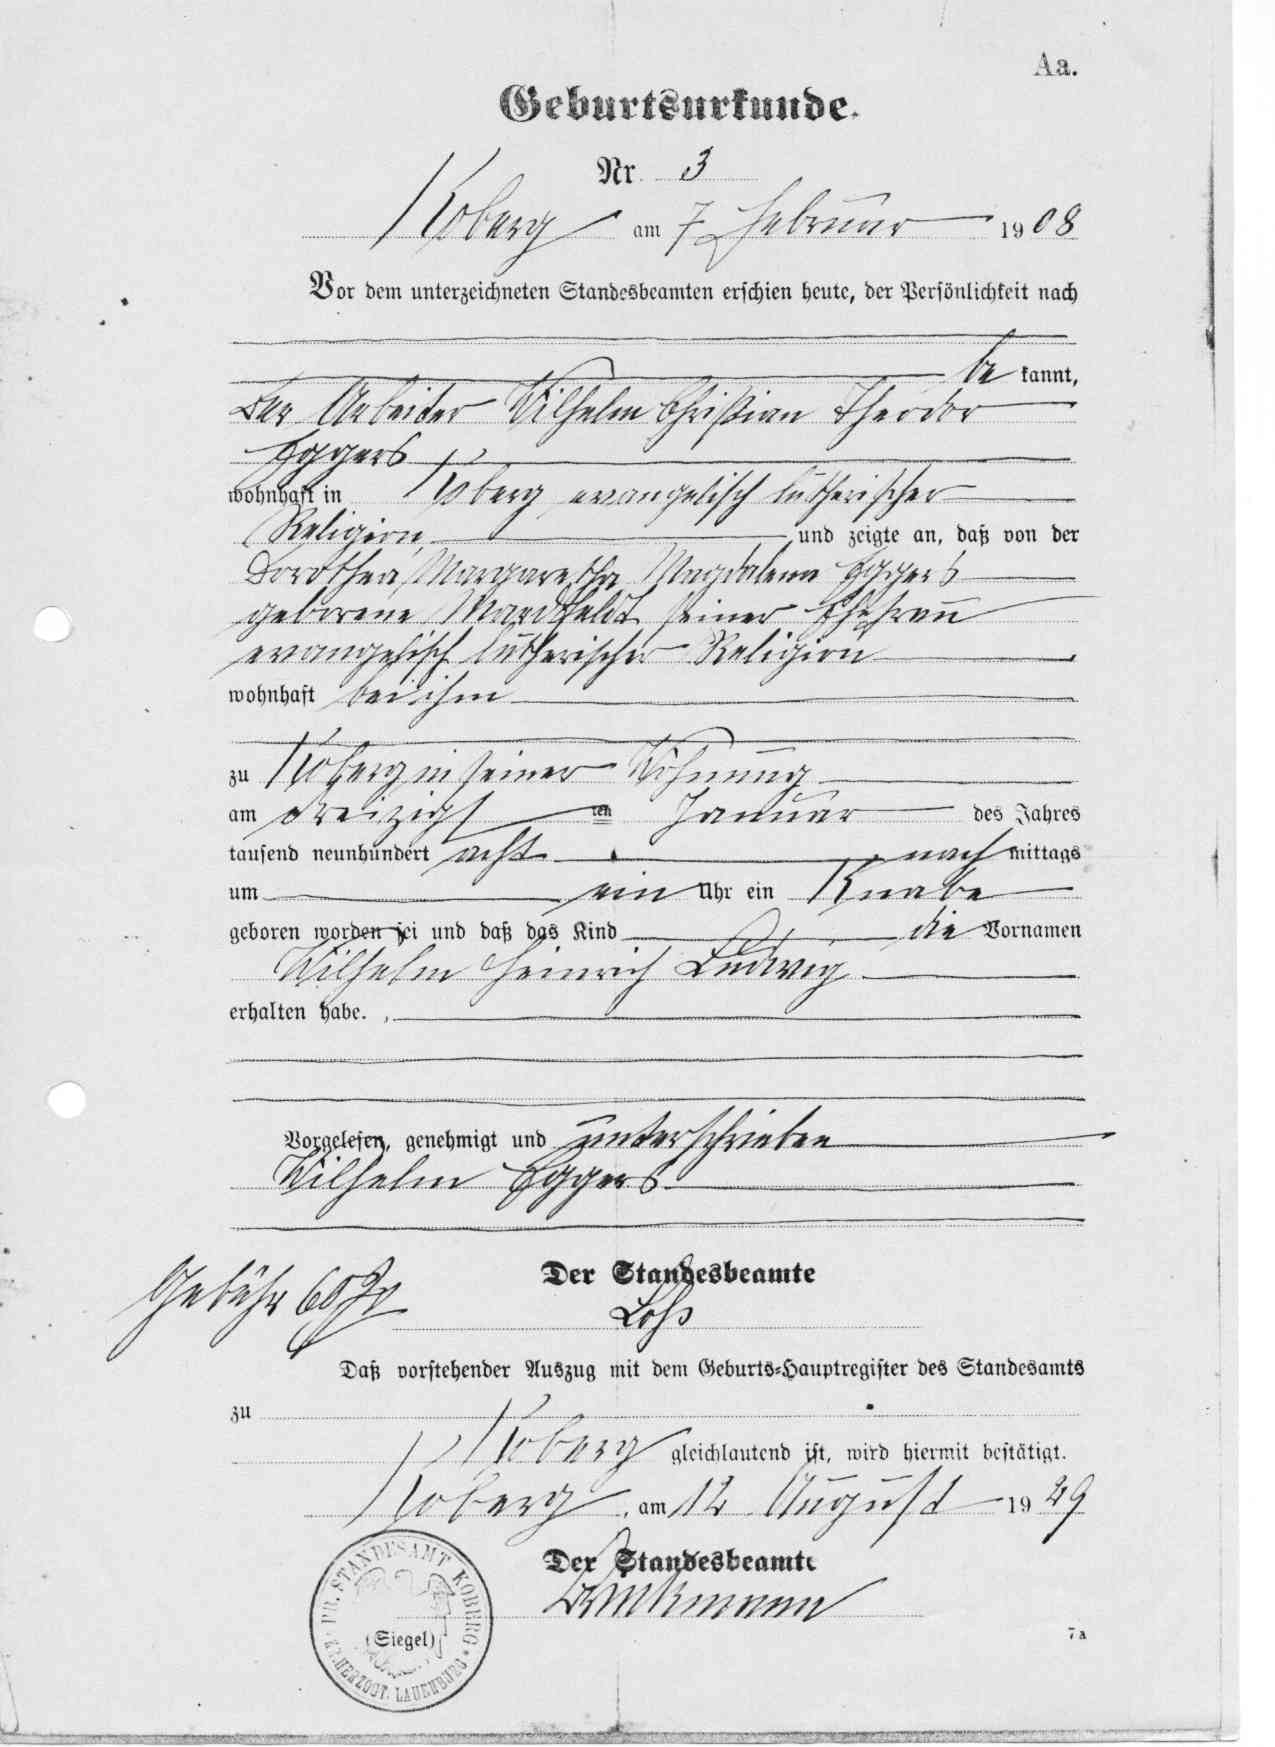 Aa.
Geburtsurkunde.
Nr. 3
Koberg am 7 Februar 1908
Vor dem unterzeichneten Standesbeamten erschien heute, der Persönlichkeit nach
be kannt,
der Arbeiter Wilhelm Christian Theodor
Eggers
wohnhaft in Koberg evangelisch lutherischer
Religion, und zeigte an, daß von der
Dorothea Margaretha Magdalena Eggers
geborene Mardtfeldt seiner Ehefrau
evangelisch lutherischer Religion
wohnhaft bei ihm
zu Koberg in seiner Wohnung
am dreizigsten Januar des Jahres
tausend neunhundert acht nach mittags
um ein Uhr ein Knabe
geboren worden sei und daß das Kind die Vornamen
Wilhelm Heinrich Ludwig
erhalten habe.
Vorgelesen, genehmigt und unterschrieben
Wilhelm Eggers
Der Standesbeamte
Gebühr 60 Pf
Daß vorstehender Auszug mit dem Geburts-Hauptregister des Standesamts
zu
Koberg gleichlautend ist, wird hiermit bestätigt.
Koberg, am 12 August 1929
Der Standesbeamte
Brinkmann
PR. STANDESAMT KOBERG
(Siegel)
KR. HERZOGT. LAUENBURG
7a